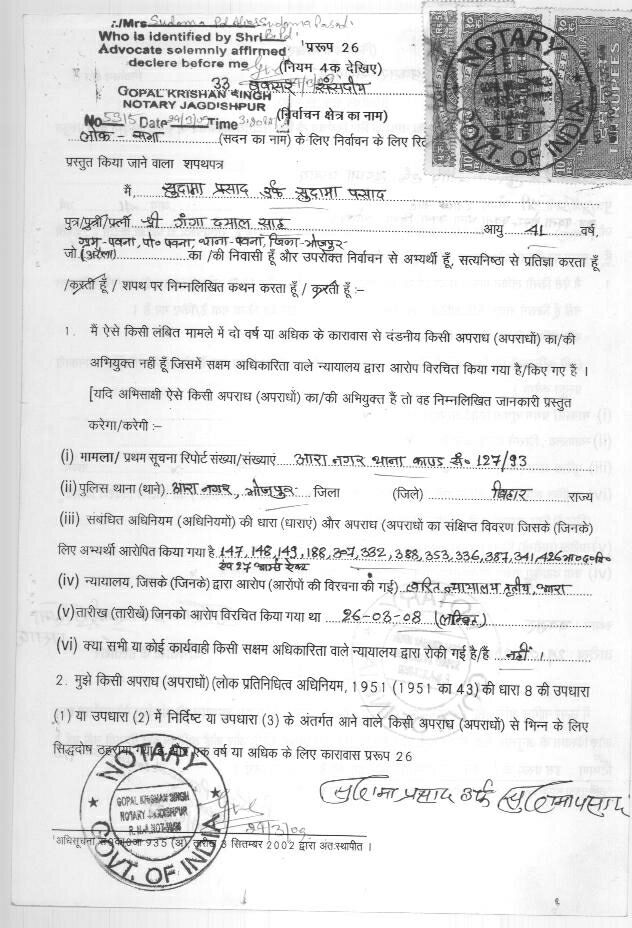 :/Mrs Sudama Pd Alias Sudama Prasad
Who is identified by Shri B. Pd.
Advocate solemnly affirmed
declere before me
GOPAL KRISHAN SINGH
NOTARY JAGDISHPUR
No 5315 Date 24/3/09 Time
¹प्ररूप 26
(नियम 4क देखिए)
33 बक्सर संसदीय
(निर्वाचन क्षेत्र का नाम)
NOTARY
GOVT. OF INDIA
लोक - सभा (सदन का नाम) के लिए निर्वाचन के लिए रिट
प्रस्तुत किया जाने वाला शपथपत्र
मैं, सुदामा प्रसाद उर्फ सुदामा प्रसाद
पुत्र/पुत्री/पत्नी श्री गंगा दयाल साह आयु 41 वर्ष,
ग्राम-पवना, पो० पवना, थाना-पवना, जिला-भोजपुर
जो (आरा) का /की निवासी हूँ और उपरोक्त निर्वाचन से अभ्यर्थी हूँ, सत्यनिष्ठा से प्रतिज्ञा करता हूँ
/करती हूँ / शपथ पर निम्नलिखित कथन करता हूँ / करती हूँ :–
1. मैं ऐसे किसी लंबित मामले में दो वर्ष या अधिक के कारावास से दंडनीय किसी अपराध (अपराधों) का/की
अभियुक्त नहीं हूँ जिसमें सक्षम अधिकारिता वाले न्यायालय द्वारा आरोप विरचित किया गया है/किए गए है ।
[यदि अभिसाक्षी ऐसे किसी अपराध (अपराधों) का/की अभियुक्त हैं तो वह निम्नलिखित जानकारी प्रस्तुत
करेगा/करेगी :–
(i) मामला/ प्रथम सूचना रिपोर्ट संख्या/संख्याएं आरा नगर थाना काण्ड सं० 127/93
(ii) पुलिस थाना (थाने) आरा नगर, भोजपुर जिला (जिले) बिहार राज्य
(iii) संबंधित अधिनियम (अधिनियमों) की धारा (धाराएं) और अपराध (अपराधों का संक्षिप्त विवरण जिसके (जिनके)
लिए अभ्यर्थी आरोपित किया गया है 147, 148, 149, 188, 307, 332, 388, 353, 336, 387, 341, 426 भा०द०वि०
एवं 27 आर्म्स ऐक्ट
(iv) न्यायालय, जिसके (जिनके) द्वारा आरोप (आरोपों की विरचना की गई) त्वरित न्यायालय तृतीय, आरा
(v) तारीख (तारीखें) जिनको आरोप विरचित किया गया था 26-03-08 (लम्बित)
(vi) क्या सभी या कोई कार्यवाही किसी सक्षम अधिकारिता वाले न्यायालय द्वारा रोकी गई है/हैं नहीं ।
2. मुझे किसी अपराध (अपराधों) (लोक प्रतिनिधित्व अधिनियम, 1951 (1951 का 43) की धारा 8 की उपधारा
(1) या उपधारा (2) में निर्दिष्ट या उपधारा (3) के अंतर्गत आने वाले किसी अपराध (अपराधों) से भिन्न के लिए
सिद्धदोष ठहराया गया है और एक वर्ष या अधिक के लिए कारावास प्ररूप 26
सुदामा प्रसाद उर्फ सुदामा प्रसाद
NOTARY
GOPAL KRISHAN SINGH
NOTARY JAGDISHPUR
GOVT. OF INDIA
24/3/09
¹अधिसूचना सं० का०आ 935 (अ), तारीख 3 सितम्बर 2002 द्वारा अंतःस्थापित ।